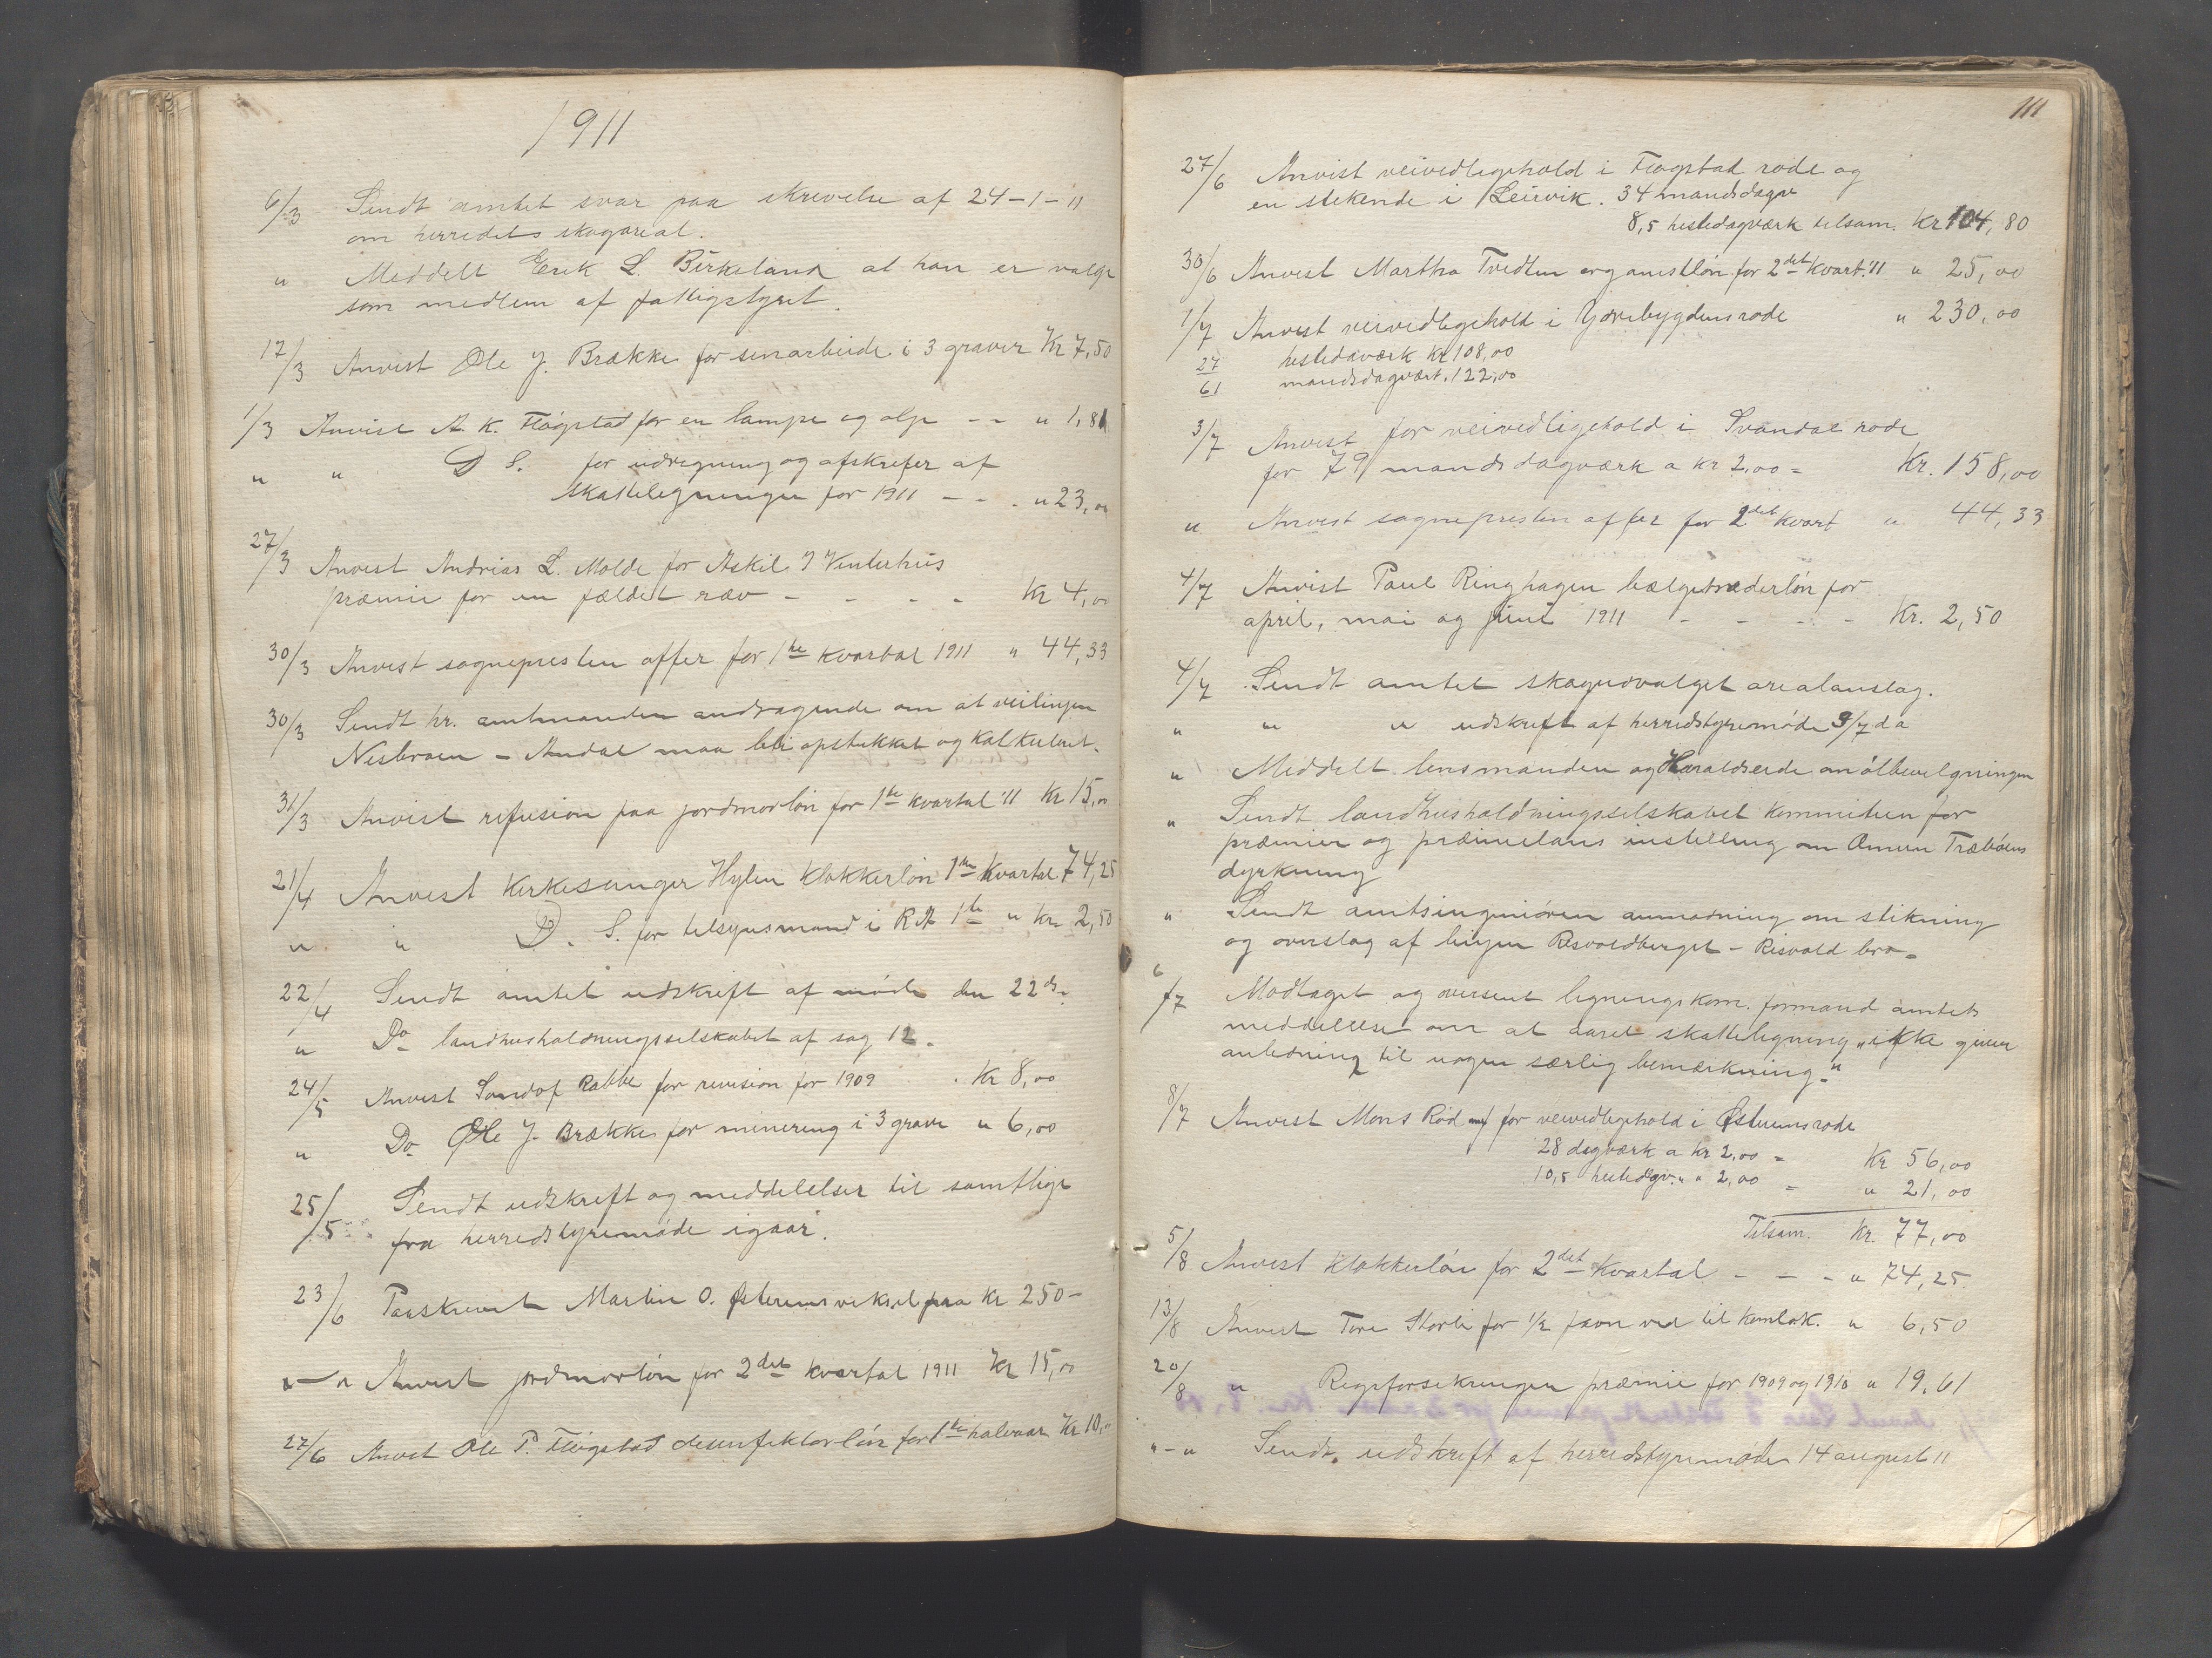 1911
6/3 Sendt amtet svar paa skrivelse af 24-1-11
om herredets skogareal.
" Meddelt Erik L. Birkeland at han er valgt
som medlem af fattigstyret.
17/3 Anvist Ole J. Brække for i 3 graver Kr 7,50
1/3 Anvist A. K. Fløgstad for en lampe og olje - - " 1,81
" " D S. for udregning og afskrifer af
skatteligningen for 1911 - - . " 23,00
27/3 Anvist Andrias L. Molde for Askil J Vinterhus
præmie for en fældet ræv - - - - Kr 4,00
30/3 Anvist sognepresten offer for 1ste kvartal 1911 " 44,33
30/3 Sendt hr. amtmanden andragende om at veilinjen
Nesbroen - Aadal maa bli opstukket og kalkuleret.
31/3 Anvist refusion paa jordmorløn for 1ste kvartal '11 Kr 15,00
21/4 Anvist Kirkesanger Hylen Klokkerløn 1ste Kvartal 74,25
" " D. S. for telsynsmand i RA 1ste " kr 2,50
22/4 Sendt amtet udskrift af møde den 22 ds.
" Do landhusholdningsselskabet af sag 12.
24/5 Anvist Sandof Rabbe for revision for 1909 . Kr 8,00
" Do Ole J. Brække for minering i 3 grave " 6,00
25/5 Sendt udskrift og meddelelser til samtlige
fra herredstyremøde igaar.
23/6 Paaskrevet Martin O. Østerems veksel paa kr 250-
" - " Anvist jordmorløn for 2det kvartal 1911 Kr 15,00
27/6 Anvist Ole P. Fløgstad desinfektorløn for 1ste halvaar Kr 10,"
111
27/6 Anvist veivedligehold i Fløgstad rode og
en stekende i Leirvik. 34 mandsdagsv
8,5 hestedagværk tilsam. Kr 104,80
30/6 Anvist Martha Tvedten organistløn for 2det kvart. '11 " 25,00
1/7 Anvist veivedligehold i Yørebygdens rode " 230,00
27 hestedaværk Kr 108,00
61 mandsdagværk. 122,00
3/7 Anvist for veivedligehold i Svandal rode
for 79 mandsdagværk a kr 2,00 = Kr. 158,00
" Anvist sognepresten offer for 2det kvart " 44,33
4/7 Anvist Paul Ringhagen bælgetræderløn for
april, mai og juni 1911 - - - - Kr. 2,50
4/7 Sendt amtet skogudvalget arealanslag.
" " " udskrift af herredstyremøde 3/7 da
" Meddelt lensmanden og Haraldseide om ølbevilgningen
" Sendt landhusholdningsselskabet kommitteen for
præmier og præmielaans instilling om Omun Træbøens
dyrkning
" Sendt amtsingeniøren anmodning om stikning
og overslag af linjen Risvoldberget - Risvold bro -
6/7 Modtaget og oversent ligningskom. formand amtets
meddelelse om at aaret skatteligning "ikke giver
anledning til nogen særlig bemærkning."
8/7 Anvist Mons Rød for veivedligehold i Østerems rode
28 dagværk a kr 2,00 = Kr 56,00
10,5 hestedgv. " " 2,00 = " 21,00
Tilsam. Kr. 77,00
5/8 Anvist Klokkerløn for 2det Kvartal - - - " 74,25
13/8 Anvist Tore Storli for 1/2 favn ved til komlok. " 6,50
20/8 " Rigsforsikringen præmie for 1909 og 1910 " 19,61
" - " Sendt udskrift af herredstyremøde 14 august 11